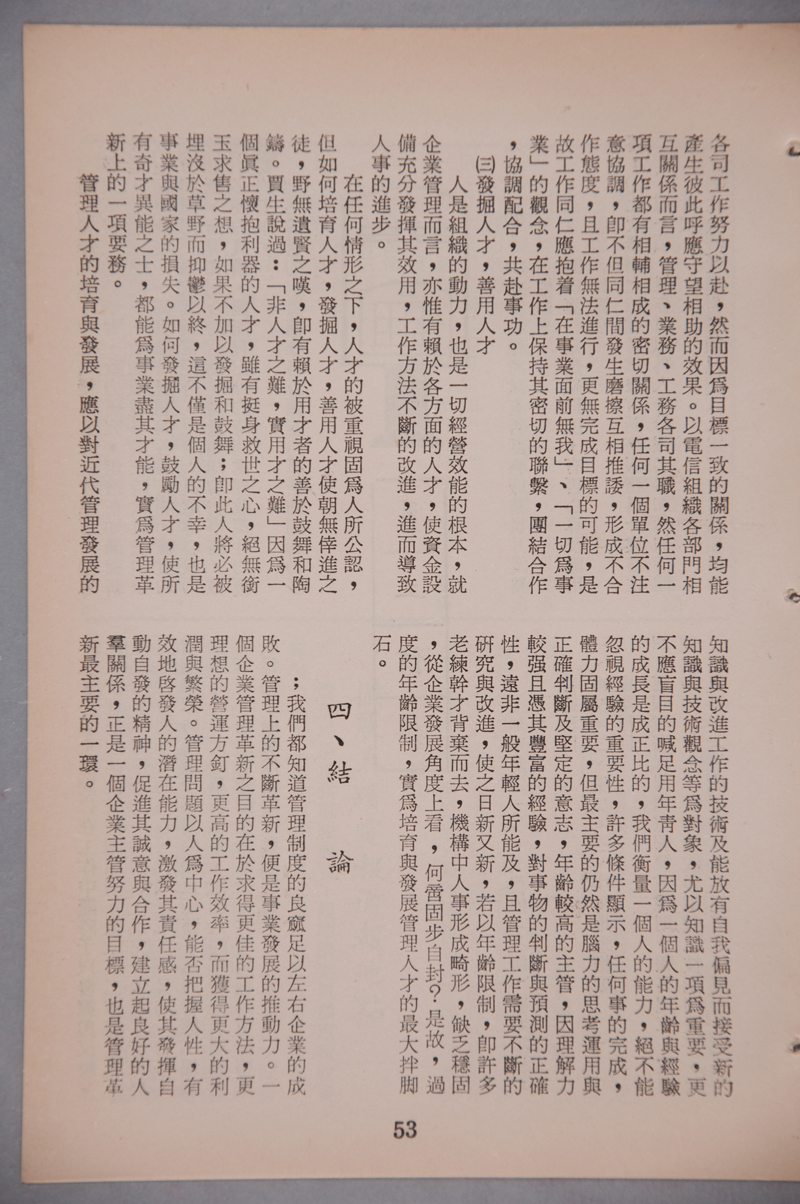 各司工作努力以赴，然而因為目標一致的關係，均能
產生彼此呼應守望相助的效果。以電信組織各部門相
互關係而言，管理、業務、工務各司其職，然任何一
項工作都有相輔相成的密切關係，任何一個單位不注
意協調，卽不但同仁間發生磨擦互相推諉，形成不合
作態度，且工作無法進行，更無完成目標的可能，是
故工作同仁應抱着「在事業面前無我」、「一切為事
業」的觀念，在工作上保持其密切的聯繫，團結合作
，協調配合，共赴事功。
㈢發掘人才，善用人才
人是組織的動力，也是一切經營效能的根本，就
企業管理而言，亦惟有賴於各方面的人才，使資金設
備充分發揮其效用，工作方法不斷的改進，進而導致
人事的進步。
在任何情形之下，人才的被重視固為人所公認，
但如何培育人才，發掘人才，善用人才使朝無倖進之
徒，野無遺賢之嘆，卽有賴於用才者的善於鼓舞和陶
鑄。賈生說過：「非人才之難，實用才之難」因為一
個眞正懷抱利器的人才，雖有挺身救世之心，絕無衒
玉求售之想，如果不加以發掘和鼓舞；卽此人將必被
埋沒於草野而抑鬱以終，這不僅是個人的不幸，也是
事業與國家的損失。如何發掘人才，鼓勵人才，使所
有奇才異能之士，都能為事業盡其才能，實為管理革
新上的一項要務。
管理人才的培育與發展，應以對近代管理發展的
知識與改進工作的技術及能放有自我偏見而接受新的
知識與技術觀念等為對象，尤以知識一項為重要，更
不應盲目的喊足用年靑人，因為一個人的年齡與經驗
的成長是成正比的，我們衡量一個人的能力，絕不能
忽視經驗的重要性，許多條件顯示，任何事的完成，
體力固屬重要，但最主要的仍然是腦力的思考運用與
正確判斷及堅定的意志，年齡較高的主管，因理解力
較强且憑其豐富的經驗，對事物的判斷與預測的正確
性，遠非一般年輕人所能及，且管理工作需要不斷的
硏究與改進，使之日新又新，若以年齡限制，卽許多
老練幹才背棄而去，機構中人事形成畸形，缺乏穩固
，從企業發展角度上看，何啻固步自封？是故，過
度的年齡限制，實為培育與發展管理人才的最大拌脚
石。
四、結　論
；我們都知道管理制度的良窳足以左右企業的成
敗。管理上的不斷革新，便是事業發展的推動力。一
個企業管理革新之目的在於求得更佳的工作方法，更
理想的營運方釘，更高的工作效率，而獲得更大的利
潤與繁榮。管理問題以人為中心，能否把握人性，有
效地啓發人的潛在能力，激發其責任感，使其發揮自
動自發的精神，促進其誠意與合作，建立起良好的人
羣關係，正是一個企業主管努力的目標，也是管理革
新最主要的一環。
53